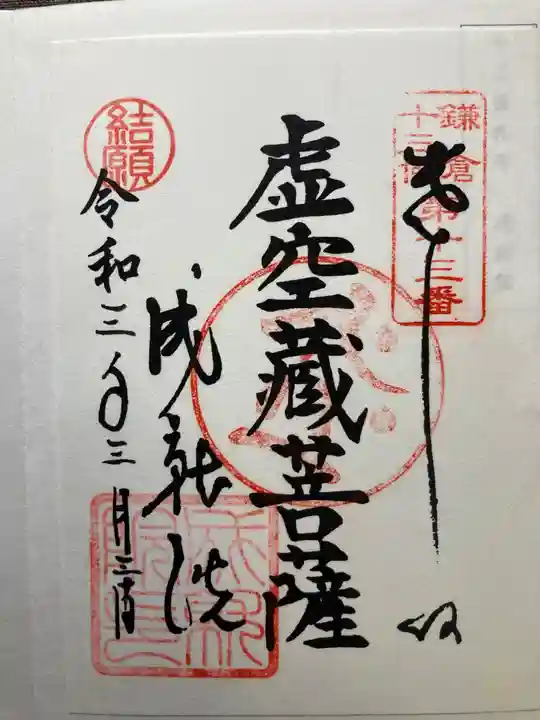 鎌倉
十三仏
第十三番
奉拝
虚空蔵菩薩
成就院
結願
令和三年三月三日